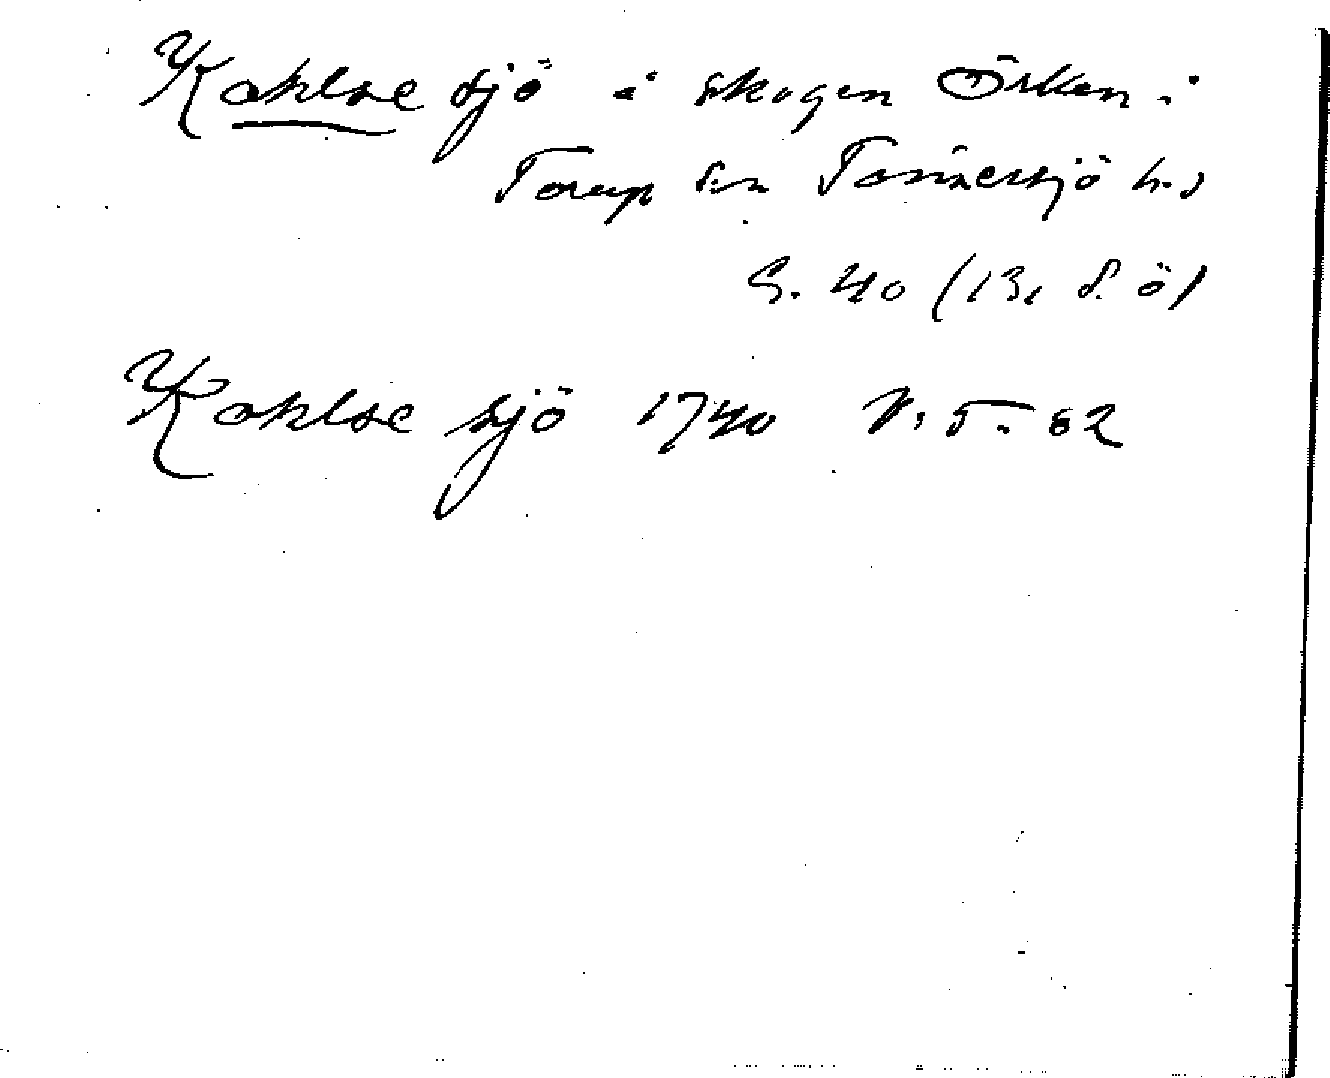 Kohlse sjö i skogen Örken i
Torup sn Tönnersjö hd
S. 40 (13, s. ö)
Kohlse sjö 1740 V. 5. 62